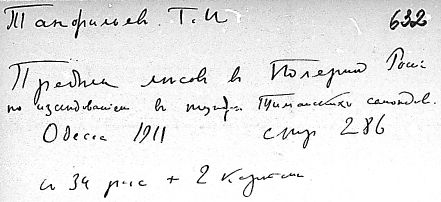 Танфильев. Г. И 632
Пределы лесов в Полярной Росс
по исследованиям в тундре Тиманских самоедов.
Одесса 1911 стр 286
с 34 рис + 2 картами